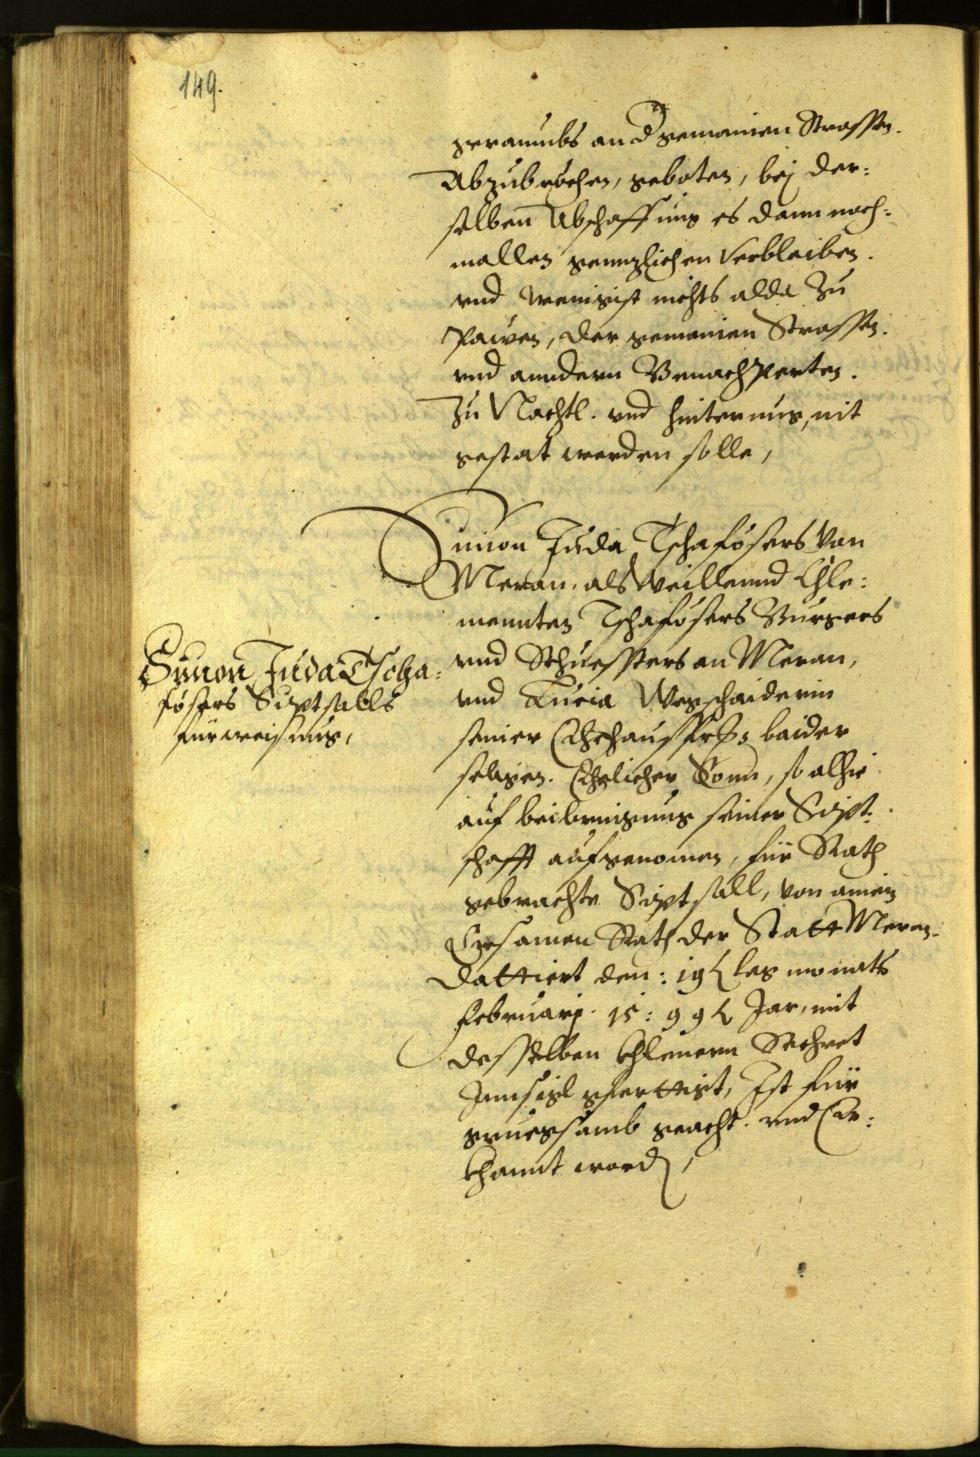 149.
geraumbs an d gemainen Strassen.
Abzubrechen, geboten, bej der=
selben Abschaffung es dann noch=
mallen genntzlichen Verbleiben.
vnd wenigist nichts alda zu
Pawen, der gemainen Strassen.
vnd anndern Benachperten.
zu Nachtl. vnd hinternus, nit
gestat werden solle,
Simon Juda Tschafösers von
Meran. als Weillennd Chle=
mennten Tschafösers Burgers
vnd Schuessters an Meran,
vnd Lucia Wegschaiderin
seiner Ehehaussfr: baider
seligen. Ehelicher Sonn, so alhie
auf beibringung seiner Sipt=
schafft aufgenomen, für Rath
gebrachte Siptsall, von ainem
Ersamen Rath der Statt Meran.
Dattiert den: 19 des monats
Februarj. 15:99 Jar, mit
desselben khlenern Secret
Innsigl gferttigt, Ist für
gnuegsamb geacht. vnd Er=
khannt word,
Simon Juda Tscha=
fösers Siptsalls
fürweisung,